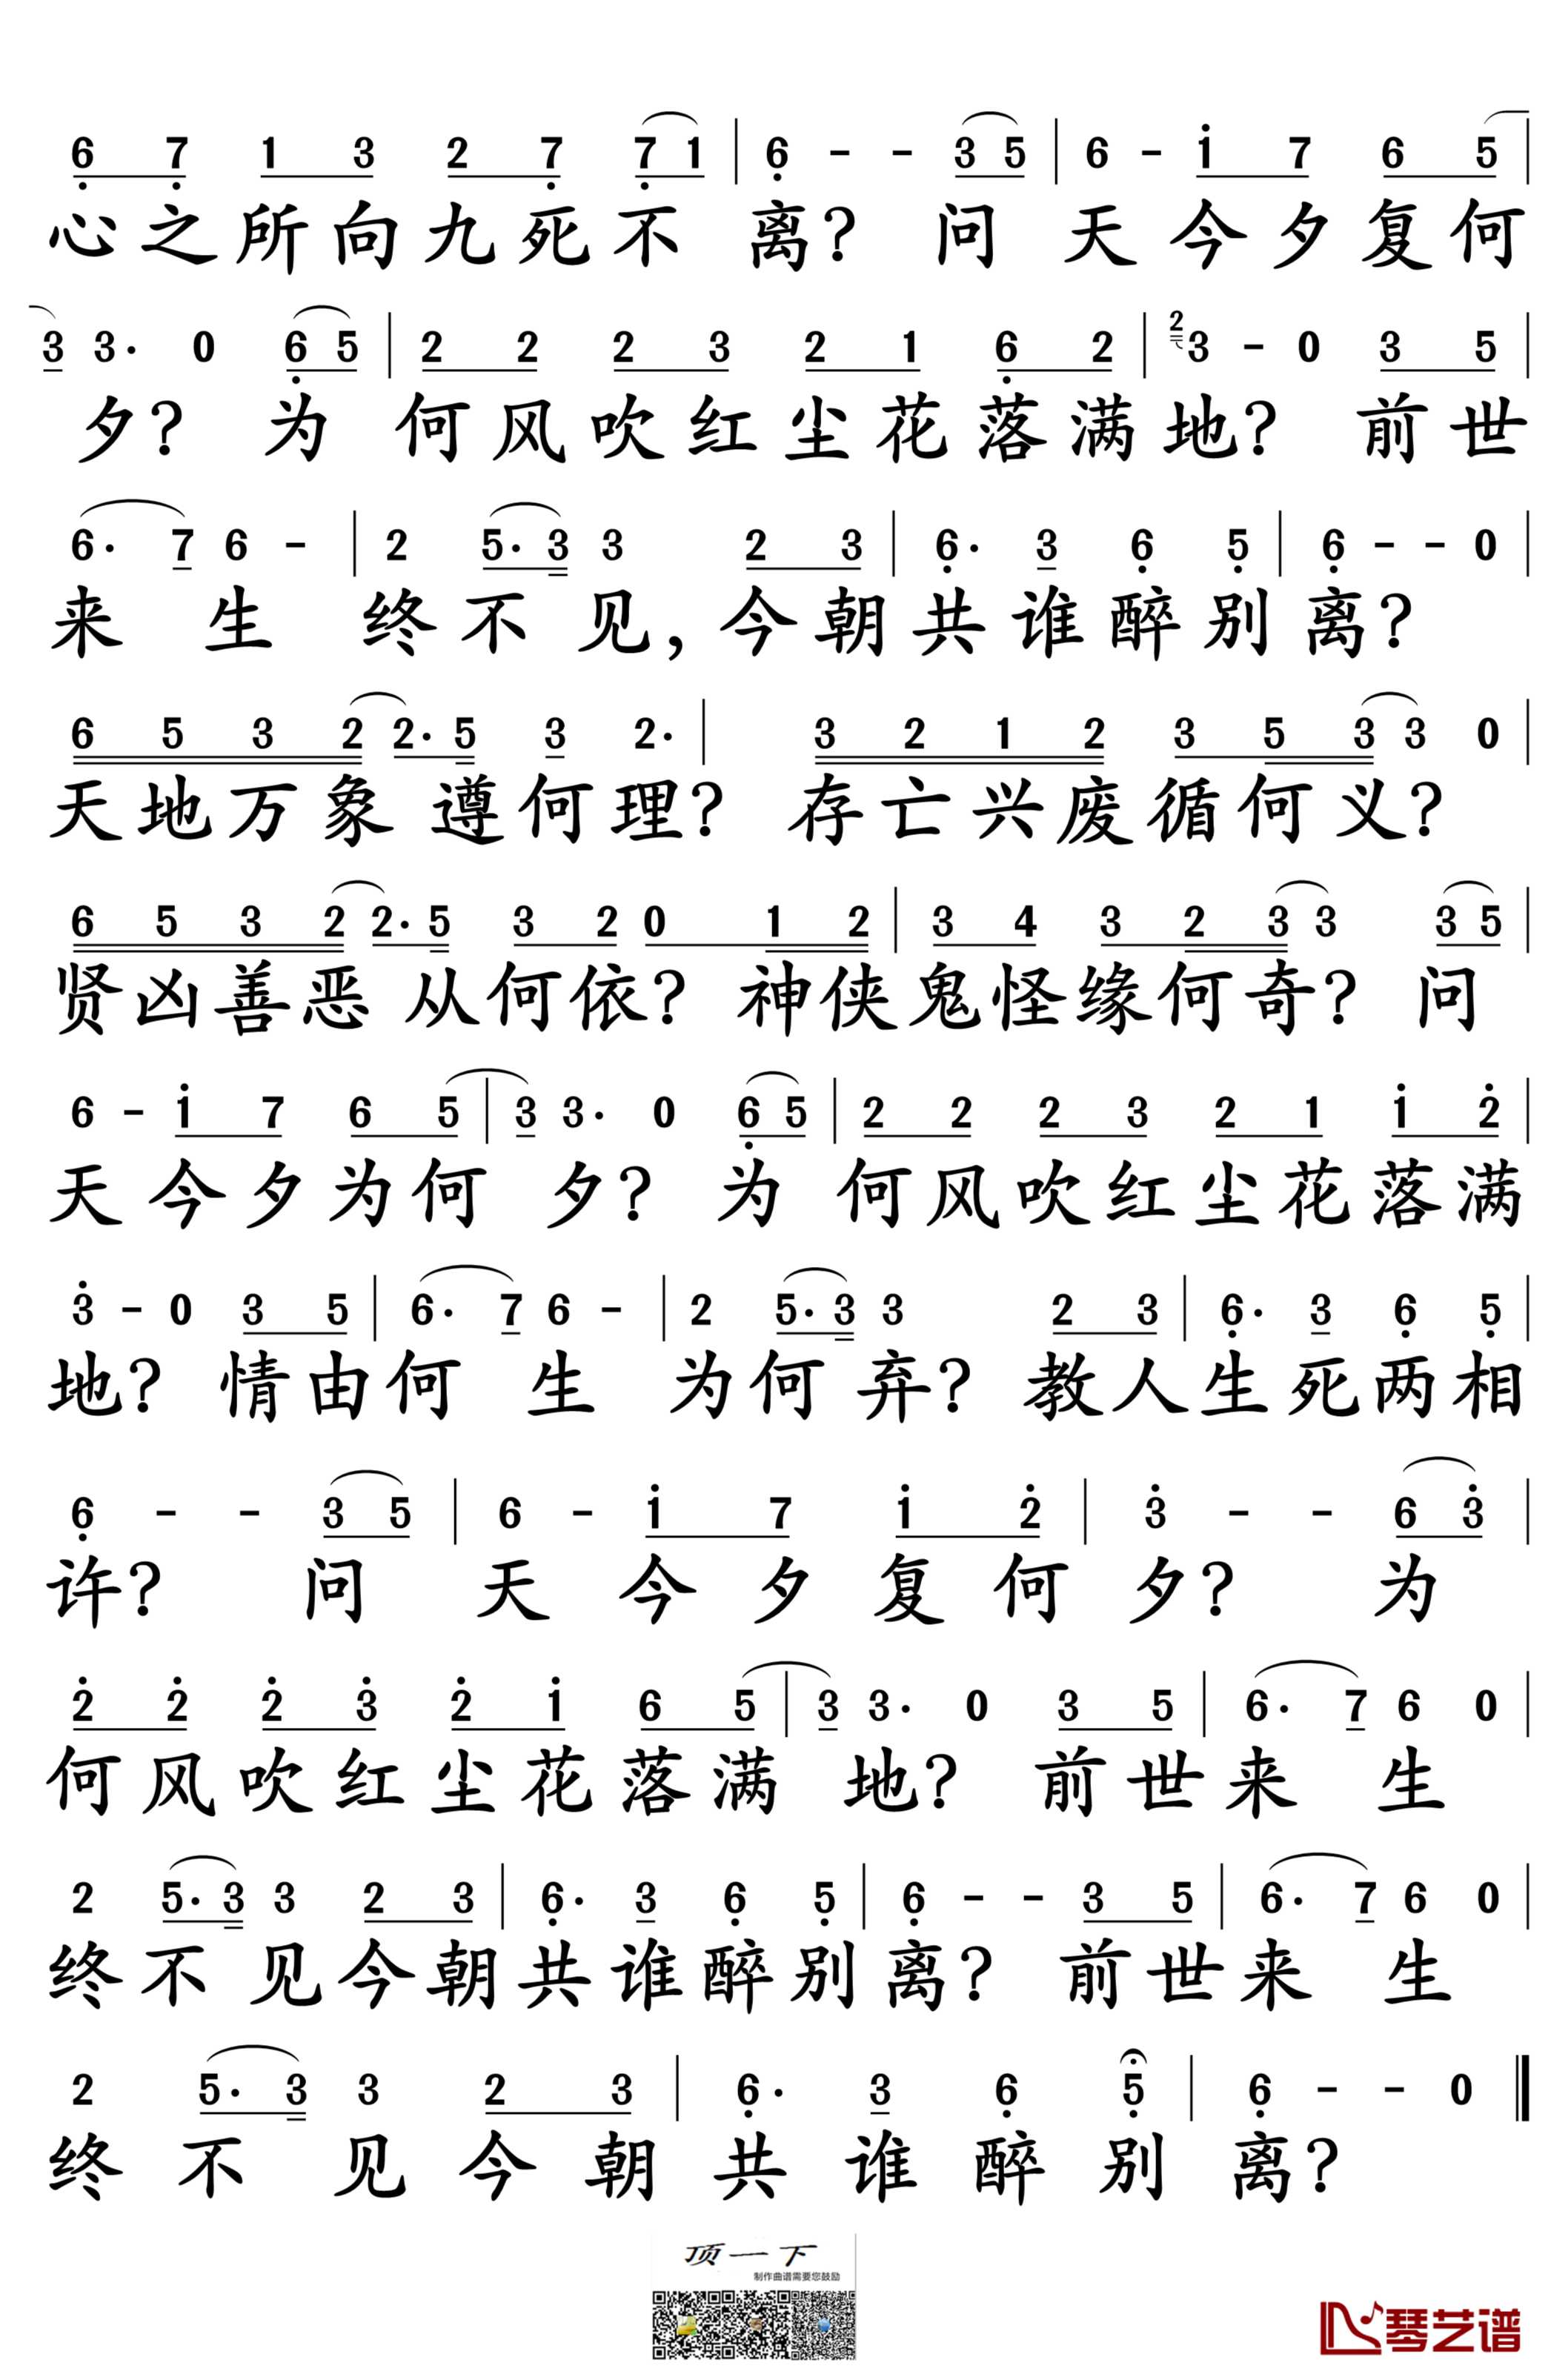 6 7 1 3 2 7 7 1 | 6 - - 3 5 | 6 - 1 7 6 5 |
心之所向九死不 离？ 问 天 今夕复何
3 3· 0 6 5 | 2 2 2 3 2 1 6 2 | 2 3 - 0 3 5 |
夕？ 为 何风吹红尘花落满 地？ 前世
6· 7 6 - | 2 5· 3 3 2 3 | 6· 3 6 5 | 6 - - 0 |
来 生 终 不 见，今朝 共 谁 醉 别 离？
6 5 3 2 2· 5 3 2· | 3 2 1 2 3 5 3 3 0 |
天地万象 遵何理？ 存亡兴废循何义？
6 5 3 2 2· 5 3 2 0 1 2 | 3 4 3 2 3 3 3 5 |
贤凶善恶 从何依？ 神侠鬼怪缘何奇？ 问
6 - 1 7 6 5 | 3 3· 0 6 5 | 2 2 2 3 2 1 1 2 |
天 今夕为何 夕？ 为 何风吹红尘花落满
3 - 0 3 5 | 6· 7 6 - | 2 5· 3 3 2 3 | 6· 3 6 5 |
地？ 情由何 生 为何 弃？ 教人生死两相
6 - - 3 5 | 6 - 1 7 1 2 | 3 - - 6 3 |
许？ 问 天 今 夕 复 何 夕？ 为
2 2 2 3 2 1 6 5 | 3 3· 0 3 5 | 6· 7 6 0 |
何风吹红尘花落满 地？ 前世来 生
2 5· 3 3 2 3 | 6· 3 6 5 | 6 - - 3 5 | 6· 7 6 0 |
终不 见今朝共谁醉别离？ 前世来 生
2 5· 3 3 2 3 | 6· 3 6 5 | 6 - - 0
终 不 见 今 朝 共 谁 醉 别 离？
顶一下
制作曲谱需要您鼓励
琴艺谱